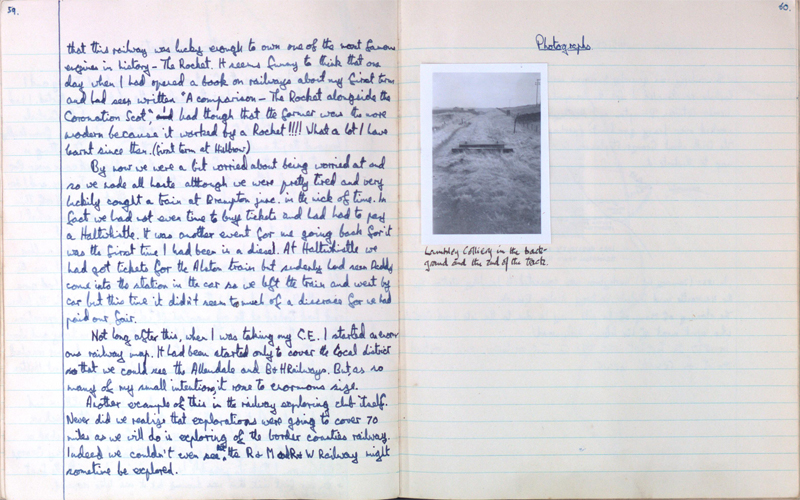 59.
that this railway was lucky enough to own one of the most famous
engines in history - The Rocket. It seems funny to think that one
day when I had opened a book on railways about my first term
and had seen written "A comparison - The Rocket alongside the
Coronation Scot", and had though that the former was the more
modern because it worked by a Rocket!!!! What a lot I have
learnt since then. (first term at Hillbrow)
By now we were a bit worried about being worried at and
so we made all haste although we were pretty tired and very
luckily caught a train at Brampton junc. in the nick of time. In
fact we had not even time to buy tickets and had had to pay
a Haltwhistle. It was another event for me going back for it
was the first time I had been is a diesel. At Haltwhistle we
had got tickets for the Alston train but sudenly had seen Daddy
come into the station in the car so we left the train and went by
car but this time it didn't seem to much of a for we had
paid our fair.
Not long after this, when I was taking my C.E. I started an enorm
ous railway map. It had been started only to cover the local district
so that we could see the Allendale and B & H Railways. But as so
many of my small intentions, it rose to enormous size.
Another example of this in the railway exploring club itself.
Never did we realize that explorations were going to cover 70
miles as we will do is exploring of the border counties railway.
Indeed we couldn't even see the R & M and R & W Railway might
sometime be explored.
60.
Photographs
Lambley Colliery in the back-
ground and the end of the track.